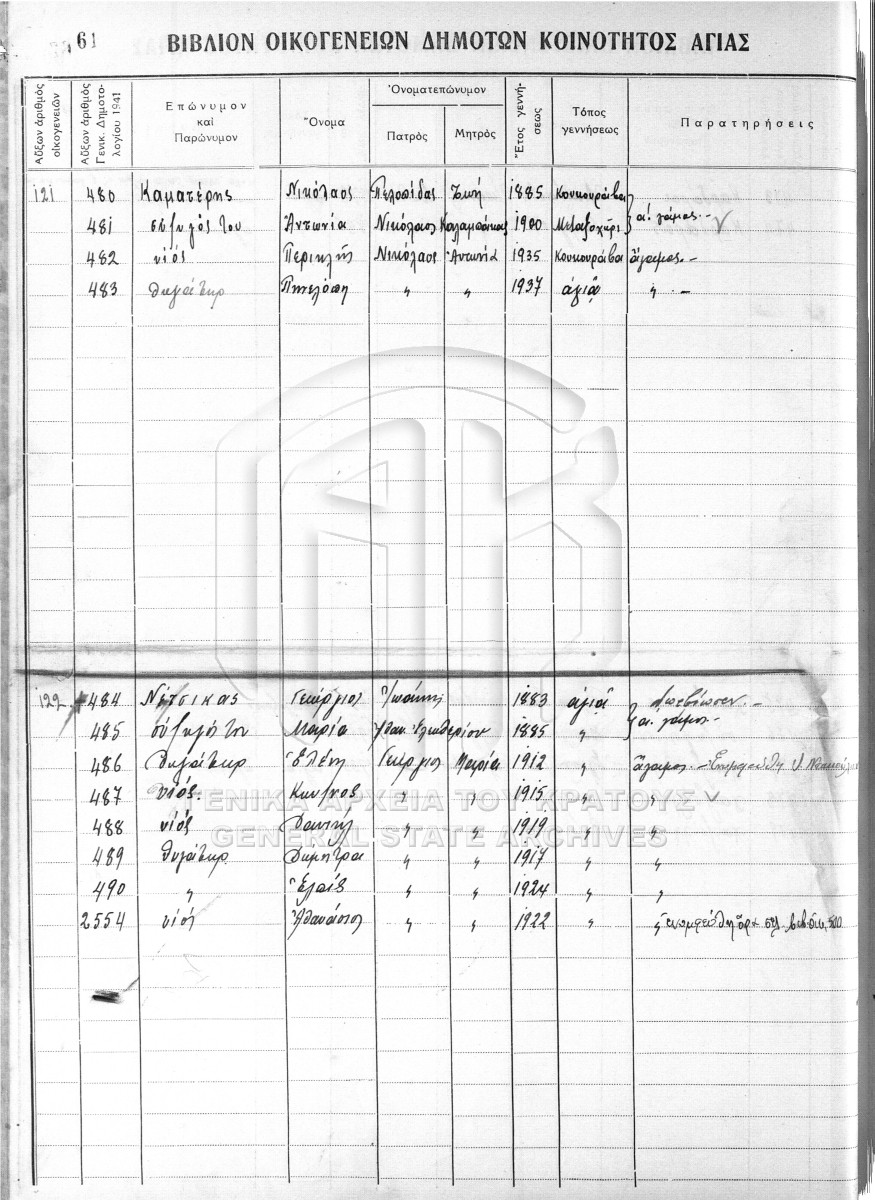 61
ΒΙΒΛΙΟΝ ΟΙΚΟΓΕΝΕΙΩΝ ΔΗΜΟΤΩΝ ΚΟΙΝΟΤΗΤΟΣ ΑΓΙΑΣ
Αὔξων ἀριθμὸς οἰκογενειῶν
Αὔξων ἀριθμὸς Γενικ. Δημοτολογίου 1941
Ἐπώνυμον καὶ Παρώνυμον
Ὄνομα
Ὀνοματεπώνυμον
Πατρὸς
Μητρὸς
Ἔτος γεννήσεως
Τόπος γεννήσεως
Παρατηρήσεις
121 480 Καματέρης Νικόλαος Πελοπίδας Ζωή 1885 Κουκουράβα
481 σύζυγός του Ἀντωνία Νικόλαος Καλαμπάκας 1900 Μεταξοχώρι α! γάμος.-
482 υἱός Περικλῆς Νικόλαος Ἀντωνία 1935 Κουκουράβα ἄγαμος.-
483 θυγάτηρ Πηνελόπη " " 1937 ἁγιᾶ " .-
122 484 Νέτσικας Γεώργιος Ἰωάννης 1883 ἁγιᾶ
485 σύζυγός του Μαρία Ἐλευθερίου 1885 " α. γάμος.-
486 Θυγάτηρ Ἑλένη Γεώργιος Μαρία 1912 " ἄγαμος.-
487 υἱός " " 1915 " "
488 υἱός " " 1919 " "
489 θυγάτηρ Δημητρα " " 1917 " "
490 " " " 1924 " "
2554 υἱός Ἀθανάσιος " " 1922 " "
ΓΕΝΙΚΑ ΑΡΧΕΙΑ ΤΟΥ ΚΡΑΤΟΥΣ
GENERAL STATE ARCHIVES